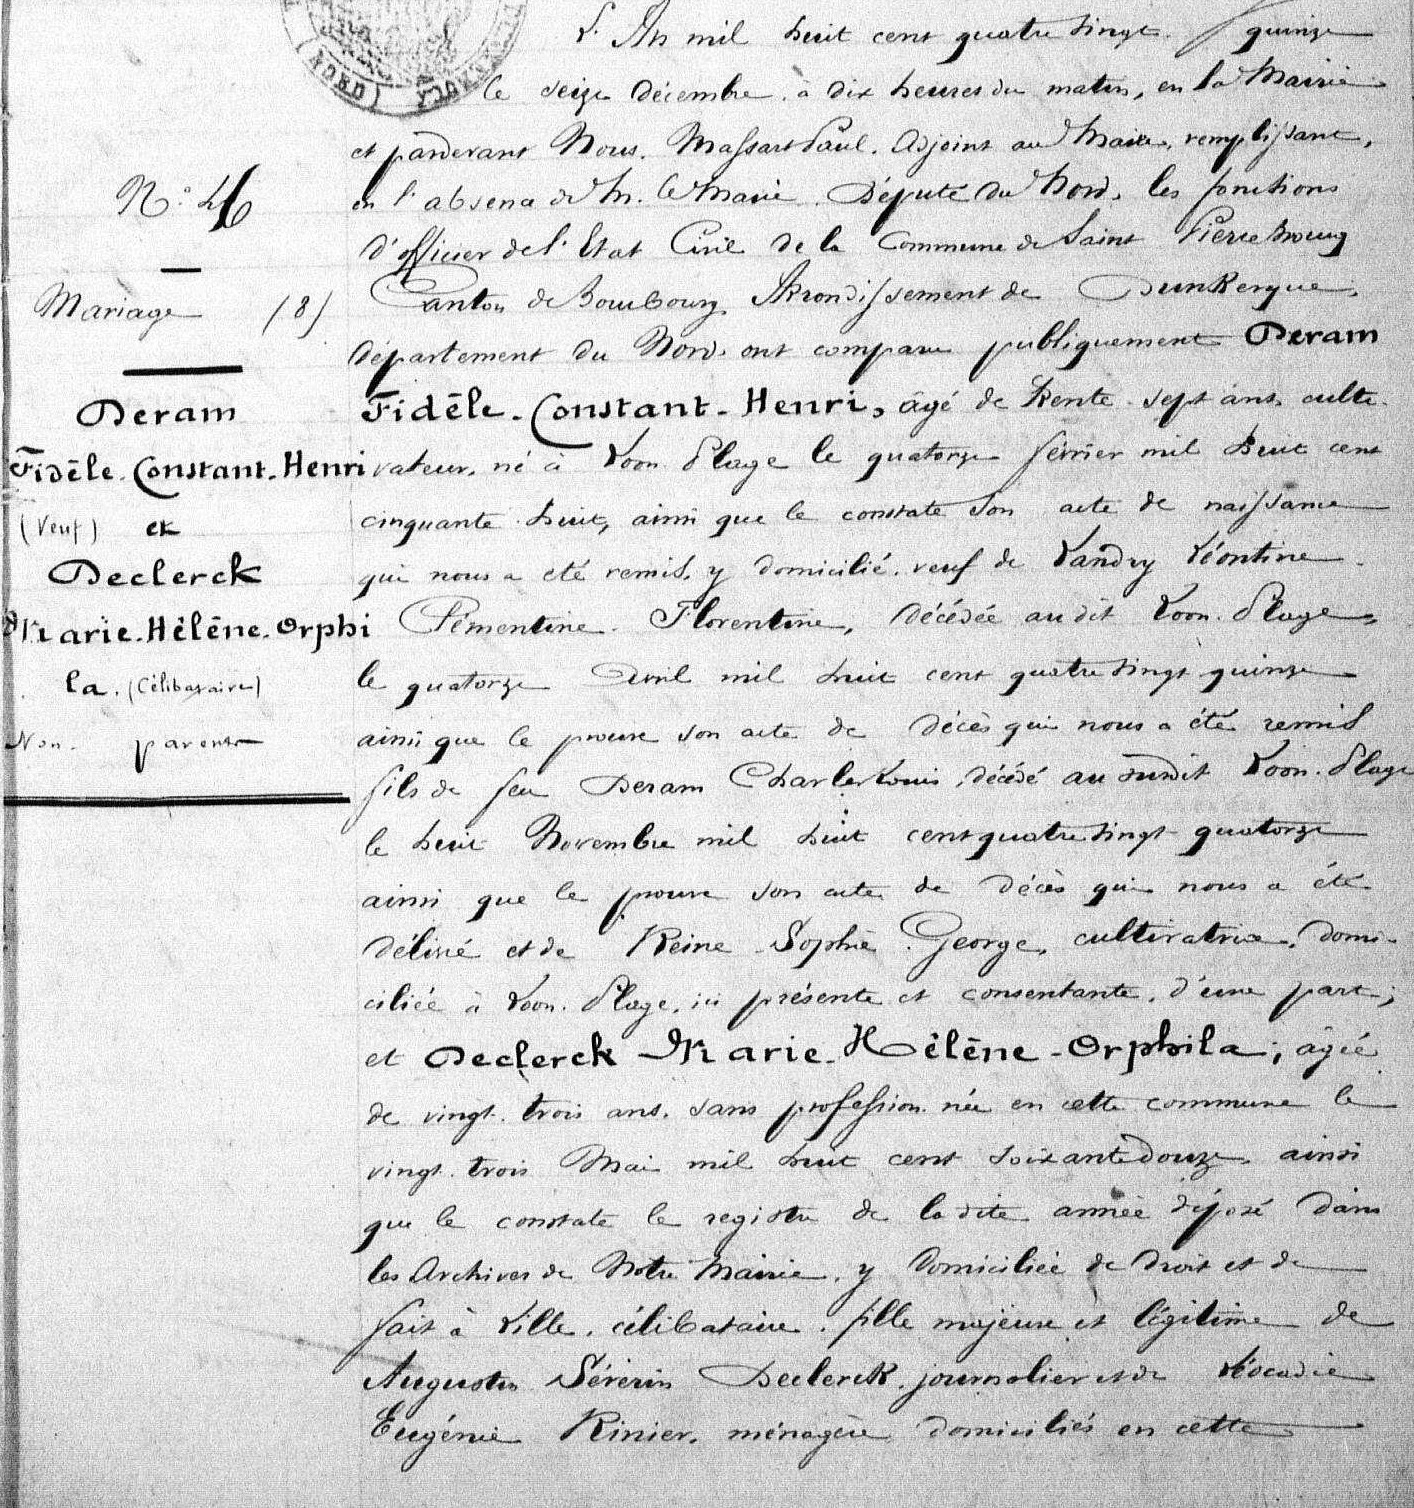 (NORD)
L'An mil huit cent quatre vingt quinze
le seize décembre à dix heures du matin, en la Mairie
et pardevant Nous, Massart Paul, Adjoint au Maire, remplissant,
N° 46
en l'absence de M. le Maire, Député du Nord, les fonctions
d'officier de l'Etat Civil de la Commune de Saint Pierrebrouck
Mariage (8)
Canton de Bourbourg, Arrondissement de Dunkerque,
département du Nord, ont comparu publiquement Deram
Deram
Fidèle-Constant-Henri, âgé de trente-sept ans, culti-
Fidèle-Constant-Henri
vateur, né à Loon-Plage le quatorze février mil huit cent
(Veuf) et
cinquante-huit, ainsi que le constate son acte de naissance
Declerck
qui nous a été remis, y domicilié, veuf de Landry Léontine
Marie-Hélène-Orphi
Clémentine Florentine, décédée au dit Loon-Plage,
la. (Célibataire)
le quatorze Avril mil huit cent quatre vingt quinze
Non parents
ainsi que le prouve son acte de décès qui nous a été remis
fils de feu Deram Charles Louis, décédé au susdit Loon-Plage
le huit Novembre mil huit cent quatre vingt quatorze
ainsi que le prouve son acte de décès qui nous a été
délivré et de Reine Sophie George, cultivatrice, domi-
ciliée à Loon-Plage, ici présente et consentante, d'une part;
et Declerck Marie-Hélène-Orphila, âgée
de vingt-trois ans, sans profession née en cette commune le
vingt-trois Mai mil huit cent soixante douze, ainsi
que le constate le registre de la dite année déposé dans
les Archives de Notre Mairie, y domiciliée de droit et de
fait à Lille, célibataire, fille majeure et légitime de
Augustin Sévérin Declerck, journalier et de Léocadie
Eugénie Rinier, ménagère domiciliés en cette